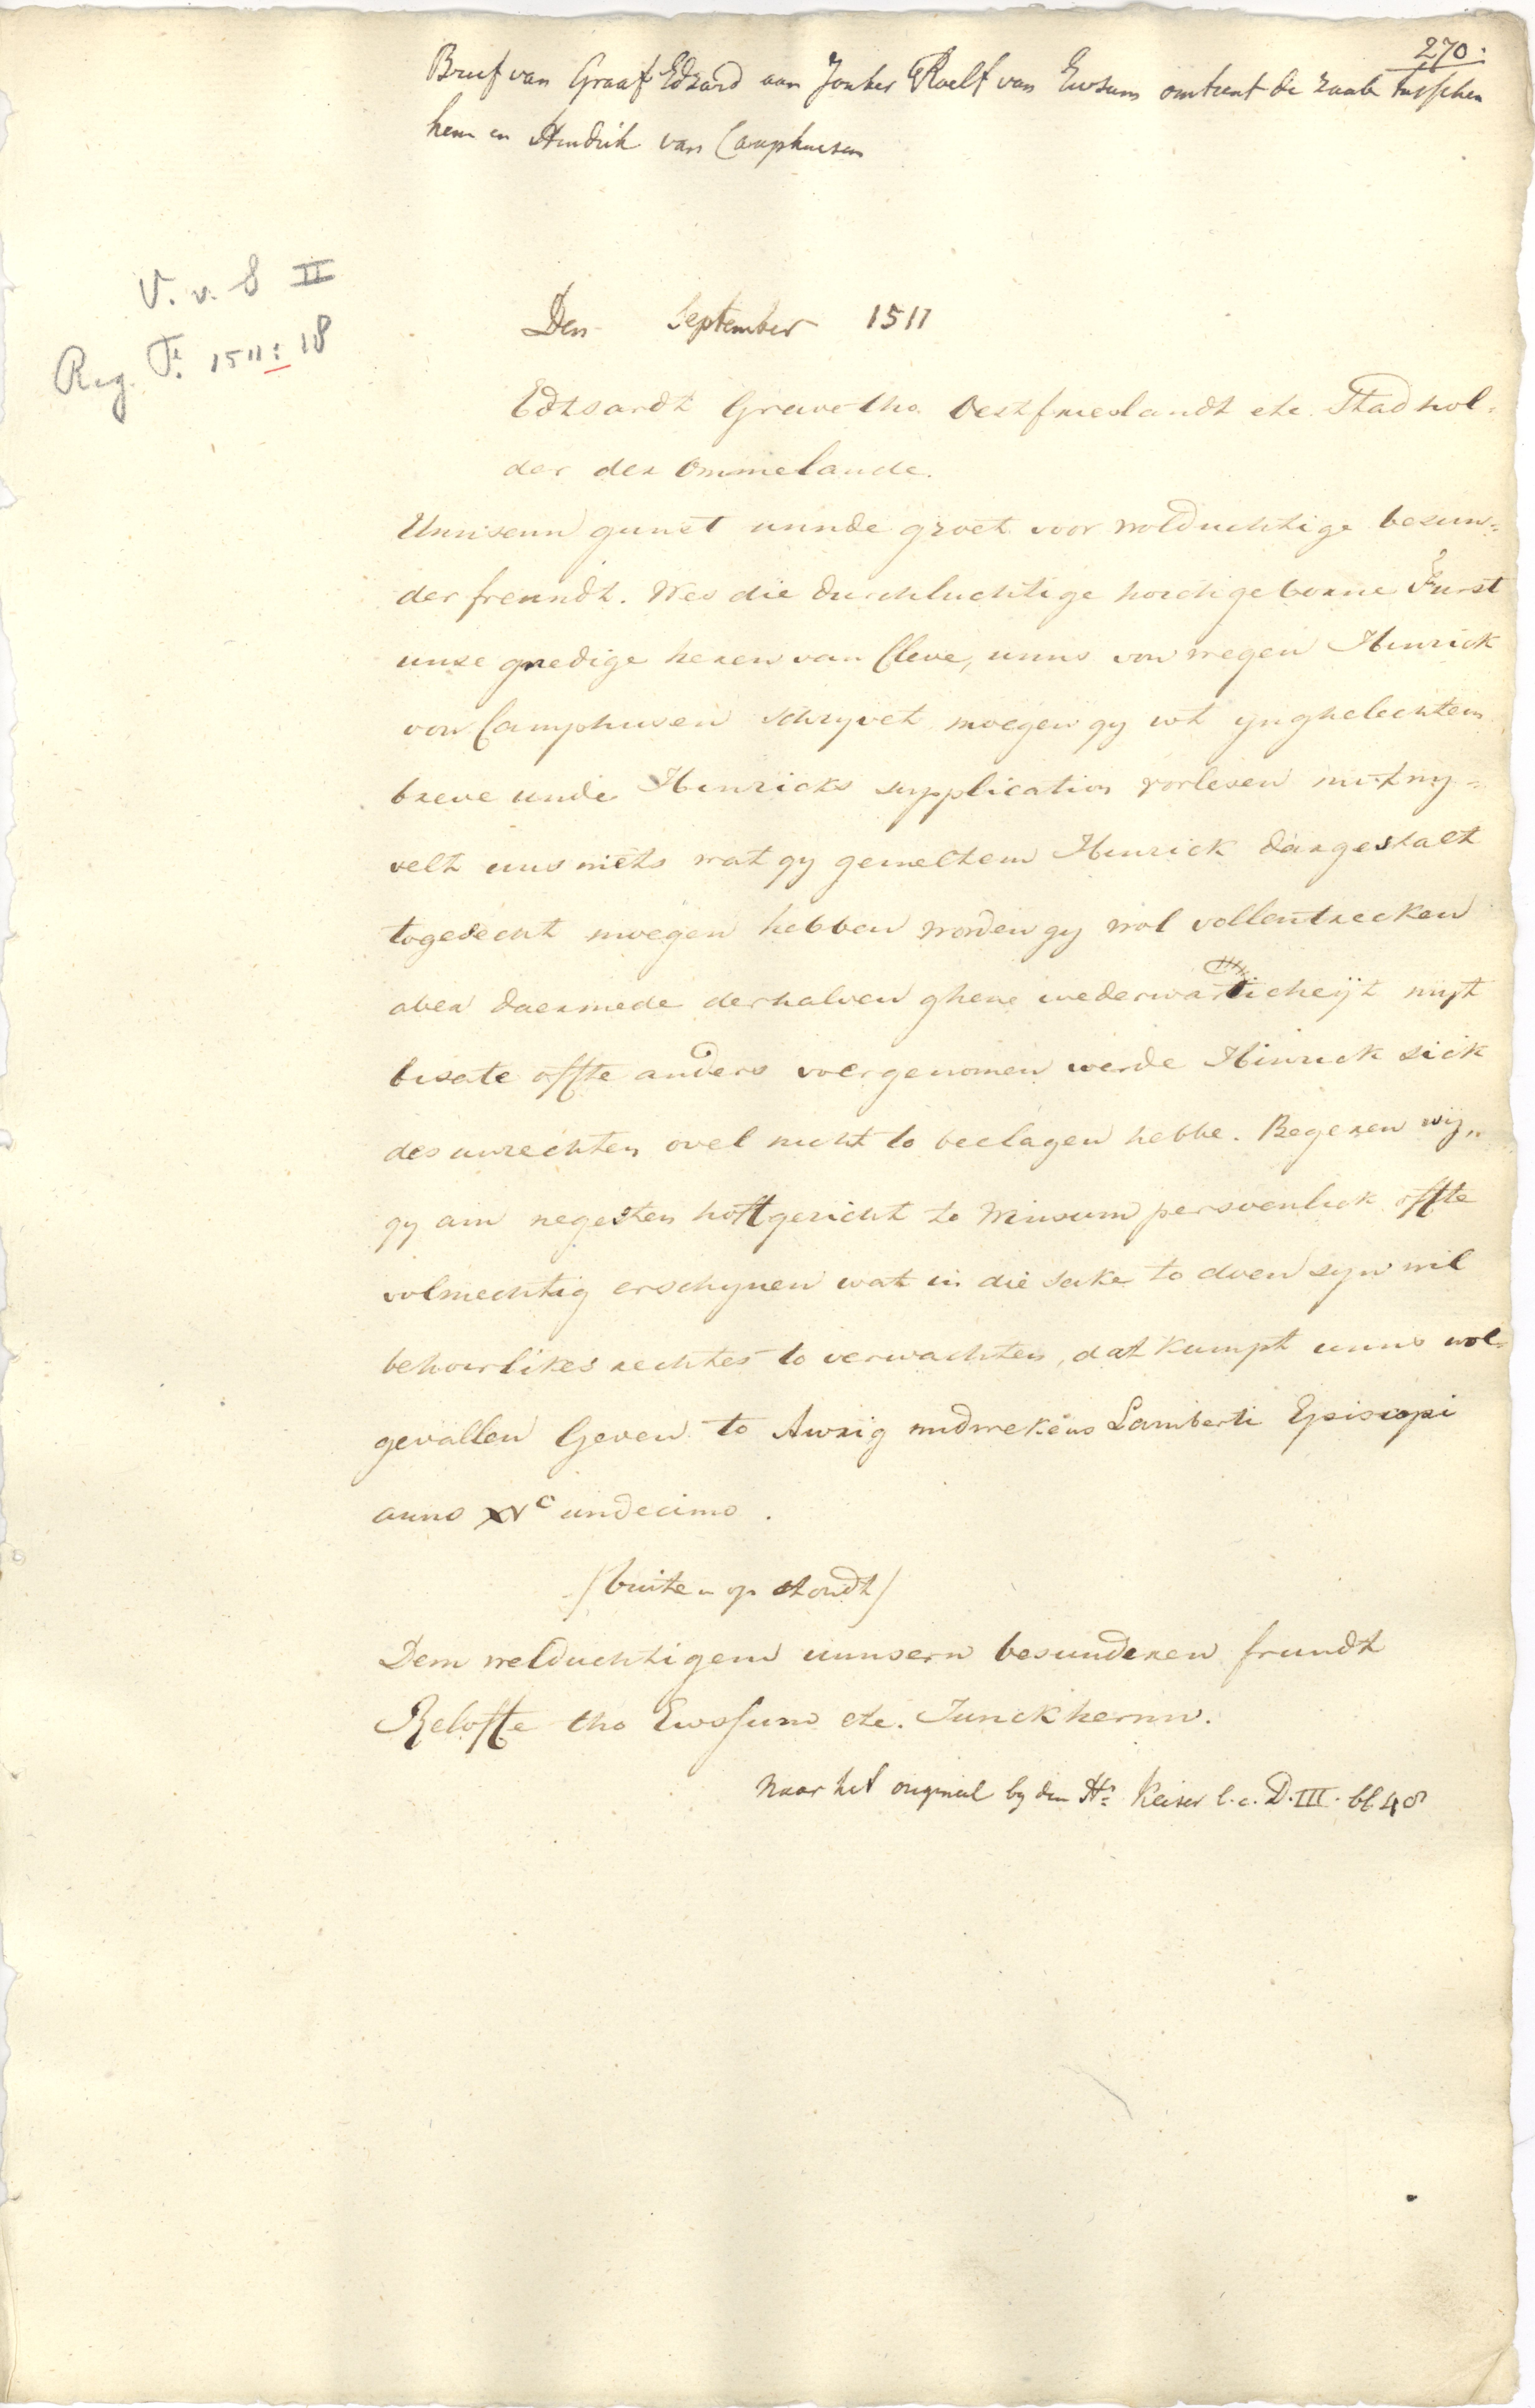 270:
Brief van Graaf Edzard aan Jonker Roelf van Ewsum omtrent de zaak tusschen
hem en Hindrik van Camphuesen
V. v. S II
Reg. F. 1511: 18
Den September 1511
Edtsardt Greve tho Oestfrieslandt etc. Stadhol=
der der Ommelande.
Unnsenn gunst unnde groet voor wolduchtige besun=
der freundt. Wes die durchluchtige hoichgeborne Furst
unse gnedige heren van Cleve, unns von wegen Hinrick
von Camphusen schryvet moegen gy wt ynghelechten
breve unde Hinricks supplication vorlesen nu twy=
velt uns niets wat gy gemeltem Hinrick dargestalt
togesecht moegen hebben worden gy wol vollentrecken
aber daermede derhalven ghene wederwarticheyt myt
besate offte anders voergenomen werde Hinrick sick
des unrechten ovel nicht to beclagen hebbe. Begeren wij,,
gy am negesten hoftgericht to Winsum persoenlick offte
volmechtig erschynen wat in die sake to doen syn wil
behoirlikes rechtes to verwachten, dat kumpt unns wol
gevallen Geven to Awrig midwekens Lamberti Episcopi
anno XVc undecimo.
/buiten op stondt/
Dem welduchtigenn unnsern besunderen frundt
Relofte tho Ewssum etc. Junckhernn.
Naar het origineel by den Hr. Keiser l.c. D.III. bl 48